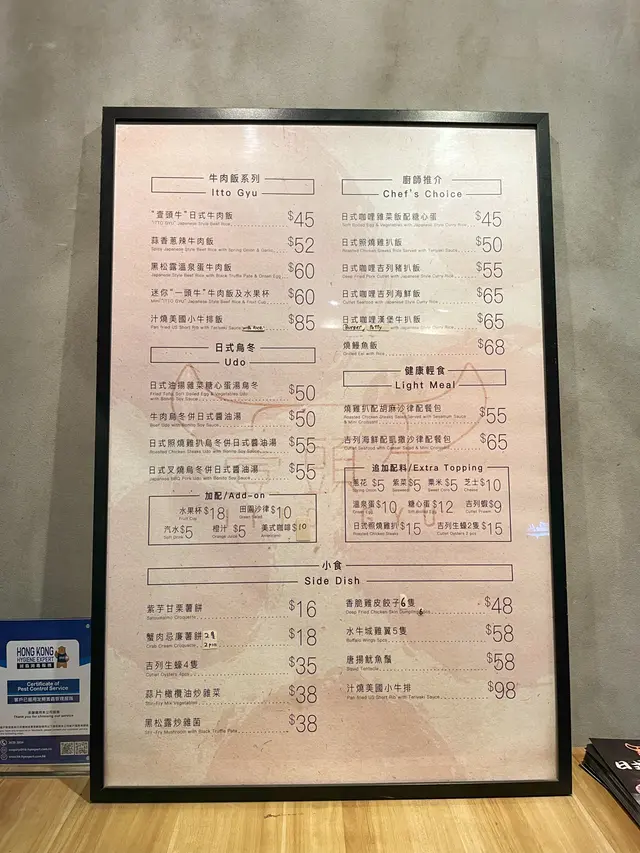 牛肉飯系列
Itto Gyu
"壹頭牛"日式牛肉飯 $45
"ITTO GYU" Japanese Style Beef Rice
蒜香蔥辣牛肉飯 $52
Spicy Japanese Style Beef Rice with Spring Onion & Garlic
黑松露溫泉蛋牛肉飯 $60
Japanese Style Beef Rice with Black Truffle Pate & Onsen Egg
迷你"一頭牛"牛肉飯及水果杯 $60
Mini "ITTO GYU" Japanese Style Beef Rice & Fruit Cup
汁燒美國小牛排飯 $85
Pan fried US Short Rib with Teriyaki Sauce with Rice
日式烏冬
Udo
日式油揚雜菜糖心蛋湯烏冬 $50
Fried Tofu, Soft Boiled Egg & Vegetables Udo
with Bonito Soy Sauce
牛肉烏冬併日式醬油湯 $50
Beef Udo with Bonito Soy Sauce
日式照燒雞扒烏冬併日式醬油湯 $55
Roasted Chicken Steaks Udo with Bonito Soy Sauce
日式叉燒烏冬併日式醬油湯 $55
Japanese BBQ Pork Udo with Bonito Soy Sauce
加配/Add-on
水果杯 $18 田園沙律 $10
Fruit Cup Green Salad
汽水 $5 橙汁 $5 美式咖啡 $10
Soft Drink Orange Juice Americano
廚師推介
Chef's Choice
日式咖喱雜菜飯配糖心蛋 $45
Soft Boiled Egg & Vegetables with Japanese Style Curry Rice
日式照燒雞扒飯 $50
Roasted Chicken Steaks Rice Served with Teriyaki Sauce
日式咖喱吉列豬扒飯 $55
Deep Fried Pork Cutlet with Japanese Style Curry Rice
日式咖喱吉列海鮮飯 $65
Cutlet Seafood with Japanese Style Curry Rice
日式咖喱漢堡牛扒飯 $65
Burger Patty with Japanese Style Curry Rice
燒鰻魚飯 $68
Grilled Eel with Rice
健康輕食
Light Meal
燒雞扒配胡麻沙律配餐包 $55
Roasted Chicken Steaks Salad Served with Sesame Sauce
& Mini Croissant
吉列海鮮配凱撒沙律配餐包 $65
Cutlet Seafood with Caesar Salad & Mini Croissant
追加配料/Extra Topping
蔥花 $5 紫菜 $5 粟米 $5 芝士 $10
Spring Onion Seaweed Sweet Corn Cheese
溫泉蛋 $10 糖心蛋 $12 吉列蝦 $9
Onsen Egg Soft Boiled Egg Cutlet Prawn
日式照燒雞扒 $15 吉列生蠔2隻 $15
Roasted Chicken Steaks Cutlet Oysters 2 pcs
小食
Side Dish
紫芋甘栗薯餅 $16
Satsumaimo Croquette
蟹肉忌廉薯餅 2個 $18
Crab Cream Croquette 2pcs
吉列生蠔4隻 $35
Cutlet Oysters 4pcs
蒜片橄欖油炒雜菜 $38
Stir-Fry Mix Vegetables
黑松露炒雜菌 $38
Stir-Fry Mushroom with Black Truffle Pate
香脆雞皮餃子6隻 $48
Deep Fried Chicken Skin Dumpling 6
水牛城雞翼5隻 $58
Buffalo Wings 5pcs
唐揚魷魚鬚 $58
Squid Tentacle
汁燒美國小牛排 $98
Pan fried US Short Rib with Teriyaki Sauce
HONG KONG
HYGIENE EXPERT
Certificate of
Pest Control Service
Thank you for choosing our service
日式